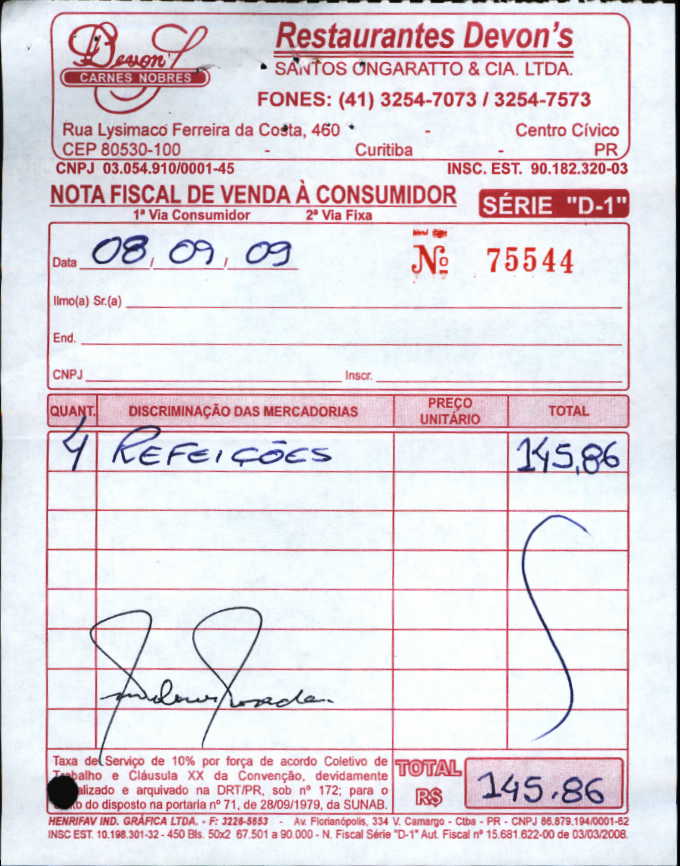 Devon's
CARNES NOBRES
Restaurantes Devon's
SANTOS ONGARATTO & CIA. LTDA.
FONES: (41) 3254-7073 / 3254-7573
Rua Lysimaco Ferreira da Costa, 460 - Centro Cívico
CEP 80530-100 - Curitiba - PR
CNPJ 03.054.910/0001-45 INSC. EST. 90.182.320-03
NOTA FISCAL DE VENDA À CONSUMIDOR
SÉRIE "D-1"
1ª Via Consumidor 2ª Via Fixa
Data 08, 09, 09
Nº 75544
Ilmo(a) Sr.(a)
End.
CNPJ Inscr.
QUANT. DISCRIMINAÇÃO DAS MERCADORIAS PREÇO UNITÁRIO TOTAL
4 REFEIÇÕES 145,86
Taxa de Serviço de 10% por força de acordo Coletivo de
Trabalho e Cláusula XX da Convenção, devidamente
arquivado na DRT/PR, sob nº 172; para o
do disposto na portaria nº 71, de 28/09/1979, da SUNAB.
TOTAL R$ 145.86
HENRIFAV IND. GRÁFICA LTDA. - F: 3228-5853 - Av. Florianópolis, 334 V. Camargo - Ctba - PR - CNPJ 86.879.194/0001-62
INSC EST. 10.198.301-32 - 450 Bls. 50x2 67.501 a 90.000 - N. Fiscal Série "D-1" Aut. Fiscal nº 15.681.622-00 de 03/03/2008.